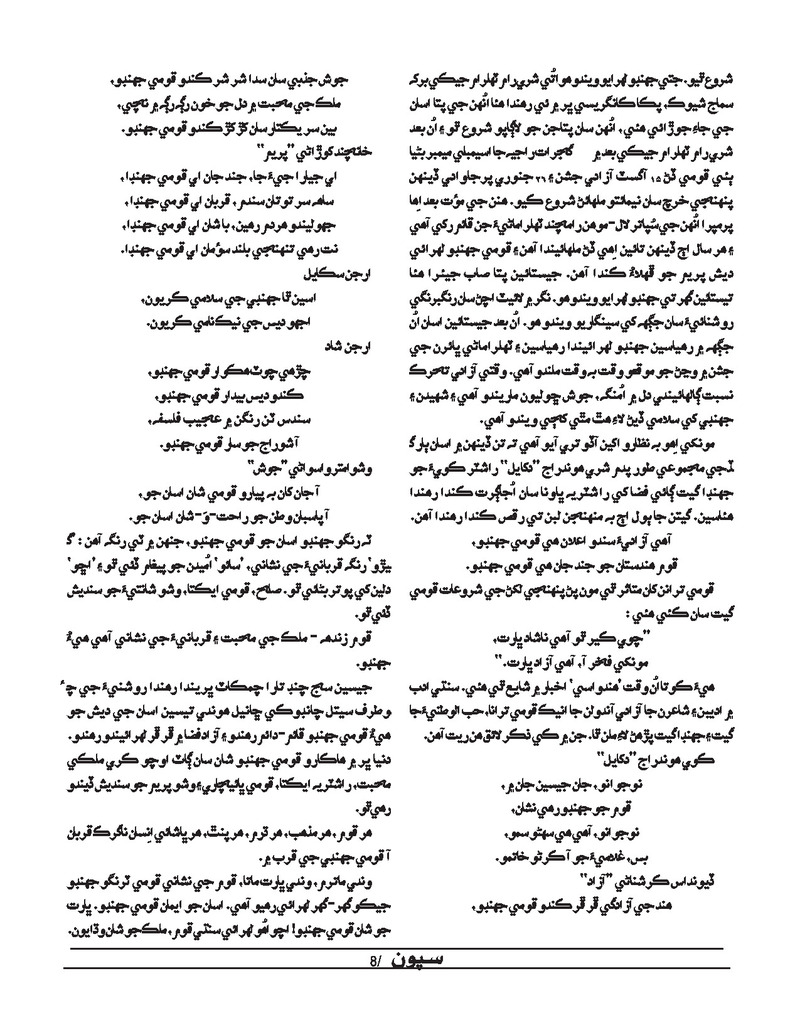 شروع ٿيو. جتي جهنڊو ڦهرايو ويندو هو اتي شري رام ٽهلرام جيڪي برڪ
سماج شيوڪ، پڪا ڪانگريسي پر ۾ ئي رهندا هئا اُنهن جي پتا اسان
جي جاءِ جوڙائي هئي، اُنهن سان پتاجن جو لاڳاپو شروع ٿو ۽ اُن بعد
شري رام ٽهلرام جيڪي بعد ۾ گجرات راجيه جا اسيمبلي ميمبر بڻيا
ٻئي قومي ڏڻ ۱۵ آگسٽ آزادي جشن ۽ ۲٦ جنوري پرجاوادي ڏينهن
پنهنجي خرچ سان نيمائتو ملهائڻ شروع ڪيو. هنن جي موُت بعد اِها
پرمپرا اُنهن جي سُپاتر لال-موهن رامچند ٽهلراماڻيءَ جن قائم رکي آهي
۽ هر سال اڄ ڏينهن تائين اِهي ڏڻ ملهائيندا آهن ۽ قومي جهنڊو ڦهرائي
ديش پريم جو ڦهلاءُ ڪندا آهن. جيستائين پتا صاحب جيئرا هئا
تيستائين گهر تي جهنڊو ڦهرايو ويندو هو. نگر ۾ لائيٽ اچڻ سان رنگبرنگي
روشنائيءَ سان جڳهه کي سينگاريو ويندو هو. اُن بعد جيستائين اسان اُن
جڳهه ۾ رهياسين جهنڊو ڦهرائيندا رهياسين ۽ ٽهلراماڻي ڀائرن جي
جشن ۾ وڃڻ جو موقعو وقت به وقت ملندو آهي. وقتي آزادي تحرڪ
نسبت ڳالهائيندي دل ۾ اُمنگ، جوش ڇوليون ماريندو آهي ۽ شهيدن ۽
جهنڊي کي سلامي ڏيڻ لاءِ هٿ مٿي کڄي ويندو آهي.
مونکي اِهو به نظارو اکين آڏو تري آيو آهي ته تن ڏينهن ۾ اسان ٻارڙ
لڏجي مجموعي طور پدم شري هوندراج "دکايل" راشٽر ڪويءَ جو
جهنڊا گيت ڳائي فضا کي راشٽريه ڀاونا سان اُجاڳرت ڪندا رهندا
هئاسين. گيتن جا ٻول اڄ به منهنجن لبن تي رقص ڪندا رهندا آهن.
آهي آزاديءَ سندو اعلان هي قومي جهنڊو،
قوم هندستان جو جند جان هي قومي جهنڊو.
قومي ترانن کان متاثر ٿي مون پڻ پنهنجي لکڻ جي شروعات قومي
گيت سان ڪئي هئي :
"چوي ڪير ٿو آهي ناشاد ڀارت،
مونکي فخر آ، آهي آزاد ڀارت."
هيءَ ڪوتا اُن وقت 'هندواسي' اخبار ۾ شايع ٿي هئي. سنڌي ادب
۾ اديبن ۽ شاعرن جا آزادي آندولن جا انيڪ قومي ترانا، حب الوطنيءَ جا
گيت ۽ جهنڊا گيت پڙهڻ لاءِ مان ٿا. جن ۾ ڪي ذڪر لائق هن ريت آهن.
ڪوي هوندراج "دکايل"
نوجوانو، جان جيسين جان ۾،
قوم جو جهنڊو رهي نشان،
نوجوانو، آهي هي سهڻو سمو،
بس، غلاميءَ جو آڪرڻو خاتمو.
ڏيونداس ڪرشناڻي "آزاد"
هند جي آزادگي ڦر ڦر ڪندو قومي جهنڊو،
جوش جذبي سان سدا شر شر ڪندو قومي جهنڊو،
ملڪ جي محبت ۾ دل جو خون رڳ رڳ ۾ نچي،
بين سريڪتار سان کڙ کڙ ڪندو قومي جهنڊو.
خانچند کوڙاڻي "پريم"
اي جيارا جيءَ جا، جند جان اي قومي جهنڊا،
ساهه سر تو تان سندم، قربان اي قومي جهنڊا،
جهوليندو هردم رهين، با شان اي قومي جهنڊا،
نت رهي تنهنجي بلند سوُمان اي قومي جهنڊا.
ارجن سڪايل
اسين ٿا جهنڊي جي سلامي ڪريون،
اجهو ديس جي نيڪنامي ڪريون.
ارجن شاد
چڙهي چوٽ هڪوار قومي جهنڊو،
ڪندو ديس بيدار قومي جهنڊو،
سندس ٽن رنگن ۾ عجيب فلسفہ،
آ شوراج جو سار قومي جهنڊو.
وشوامتر واسواڻي "جوش"
آ جان کان به پيارو قومي شان اسان جو،
آ پاسبان وطن جو راحت-وَ-شان اسان جو.
ٽہ رنگو جهنڊو اسان جو قومي جهنڊو، جنهن ۾ ٽي رنگ آهن : گ
يڙو' رنگ قربانيءَ جي نشاني، 'سائو' اُميدن جو پيغام ڏئي ٿو ۽ 'اڇو'
دلين کي پوتر بڻائي ٿو. صلاح، قومي ايڪتا، وشو شانتيءَ جو سنديش
ڏئي ٿو.
قوم زندهه - ملڪ جي محبت ۽ قربانيءَ جي نشاني آهي هيءُ
جهنڊو.
جيسين سج چنڊ تارا چمڪاٽ ڀريندا رهندا روشنيءَ جي چؤ
وطرف سيتل چانڊوڪي ڇانيل هوندي تيسين اسان جي ديش جو
هيءُ قومي جهنڊو قائم-دائم رهندو ۽ آزاد فضا ۾ ڦر ڦر ڦهرائيندو رهندو.
دنيا ڀر ۾ هاڪارو قومي جهنڊو شان سان ڳاٽ اوچو ڪري ملڪي
محبت، راشٽريه ايڪتا، قومي ڀائيچاري ۽ وشو پريم جو سنديش ڏيندو
رهي ٿو.
هر قوم، هر مذهب، هر ڌرم، هر پنٿ، هر ڀاشائي اِنسان ناگرڪ قربان
آ قومي جهنڊي جي قرب ۾.
وندي ماترم، وندي ڀارت ماتا، قوم جي نشاني قومي ترنگو جهنڊو
جيڪو گهر-گهر ڦهرائي رهيو آهي. اسان جو ايمان قومي جهنڊو. ڀارت
جو شان قومي جهنڊو! اچو اُهو ڦهرائي سنڌي قوم، ملڪ جو شان وڌايون.
سپون /8